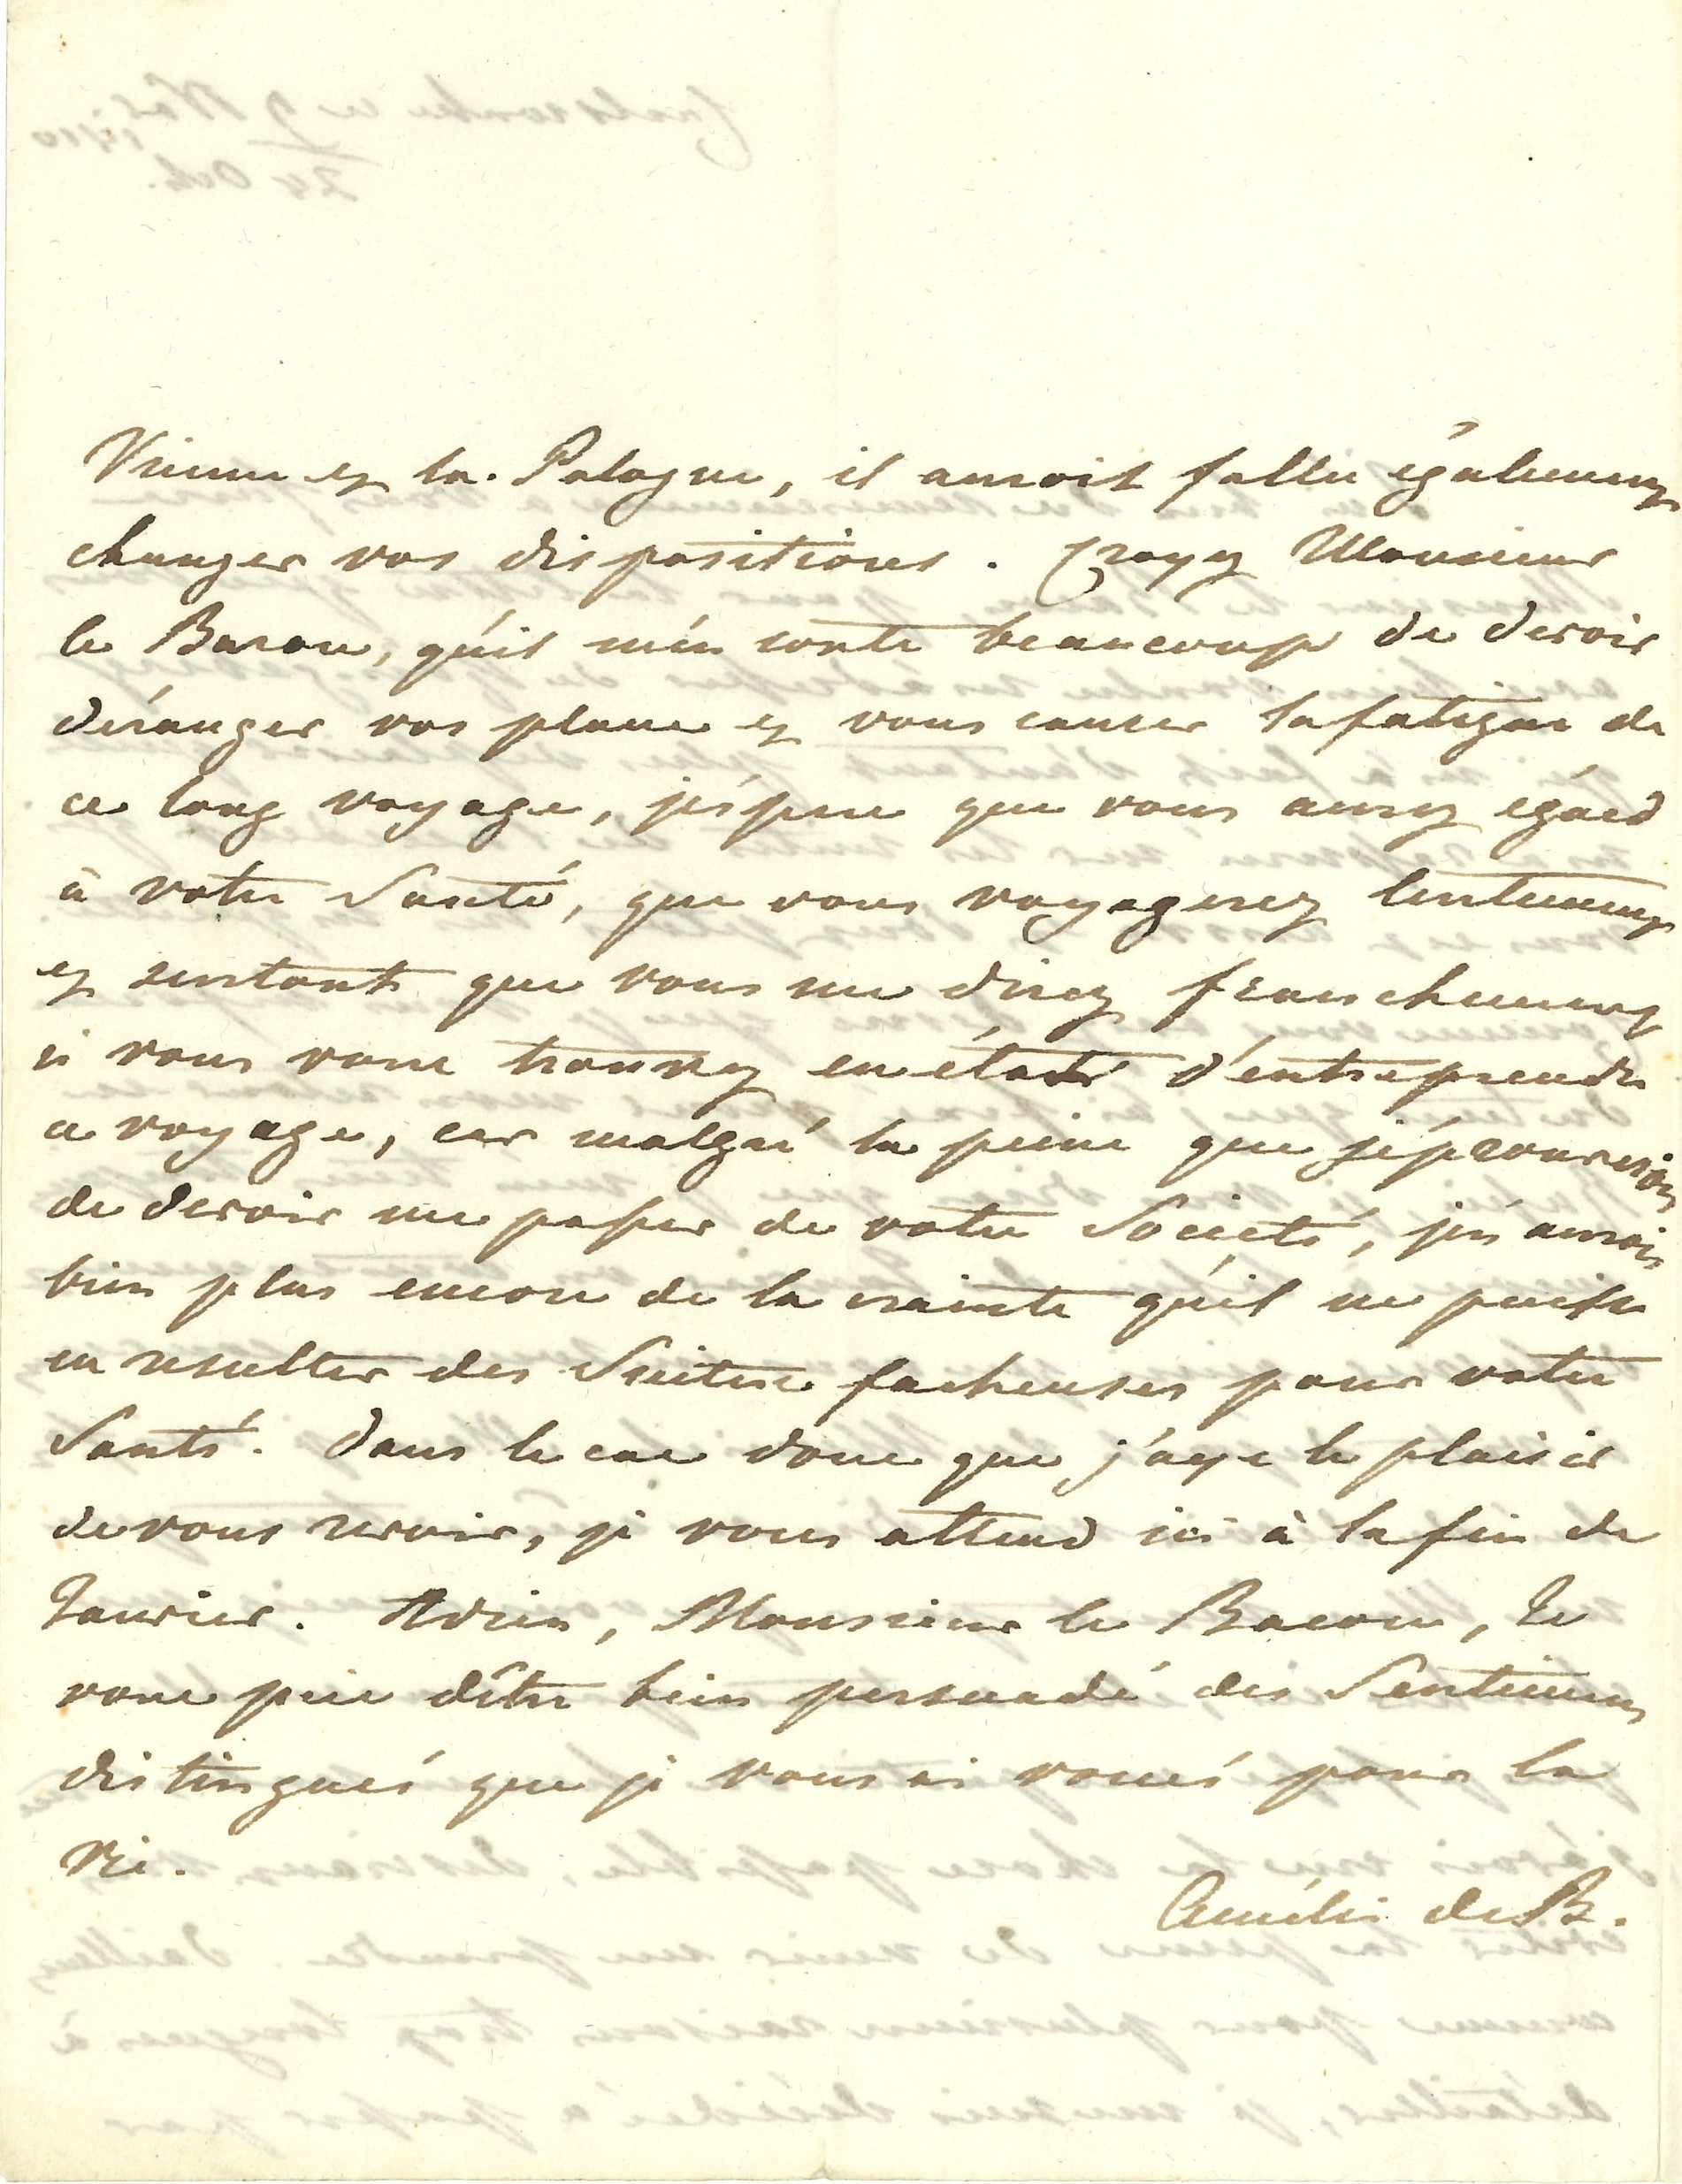 Vienne et la Pologne, il auroit fallu également
changer vos dispositions. Croyez Monsieur
le Baron, qu'il m'en coute beaucoup de devoir
déranger vos plans et vous causer la fatigue de
ce long voyage, j'éspere que vous aurez egard
à votre Santé, que vous voyagerez lentement
et surtout que vous me direz franchement
si vous vous trouvez en état d'entreprendre
ce voyage, car malgré la peine que j'éprouverois
de devoir me passer de votre Societé, j'en aurois
bien plus encore de la crainte qu'il ne puisse
en resulter des Suites facheuses pour votre
Santé. Dans le cas donc que j'aye le plaisir
de vous revoir, je vous attend ici à la fin de
Janvier. Adieu, Monsieur le Baron, Je
vous prie d'être bien persuadé des Sentimens
distingués que je vous ai voués pour la
vie.
Amélie de B.